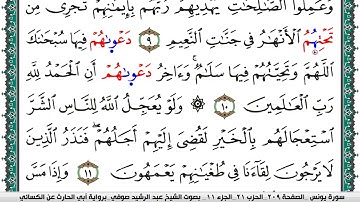 وَعَمِلُوا۟ ٱلصَّٰلِحَٰتِ يَهْدِيهِمْ رَبُّهُم بِإِيمَٰنِهِمْ تَجْرِى مِن
تَحْتِهُمُ ٱلْأَنْهَٰرُ فِى جَنَّٰتِ ٱلنَّعِيمِ ٩ دَعْوَىٰهُمْ فِيهَا سُبْحَٰنَكَ
ٱللَّهُمَّ وَتَحِيَّتُهُمْ فِيهَا سَلَٰمٌ وَءَاخِرُ دَعْوَىٰهُمْ أَنِ ٱلْحَمْدُ لِلَّهِ
رَبِّ ٱلْعَٰلَمِينَ ١٠ ۞ وَلَوْ يُعَجِّلُ ٱللَّهُ لِلنَّاسِ ٱلشَّرَّ
ٱسْتِعْجَالَهُم بِٱلْخَيْرِ لَقُضِىَ إِلَيْهِمْ أَجَلُهُمْ فَنَذَرُ ٱلَّذِينَ
لَا يَرْجُونَ لِقَآءَنَا فِى طُغْيَٰنِهِمْ يَعْمَهُونَ ١١ وَإِذَا مَسَّ
سورة يونس _ الصفحة ٢٠٩_ الحزب ٢١_ الجزء ١١ _ بصوت الشيخ عبد الرشيد صوفي _ برواية أبي الحارث عن الكسائي